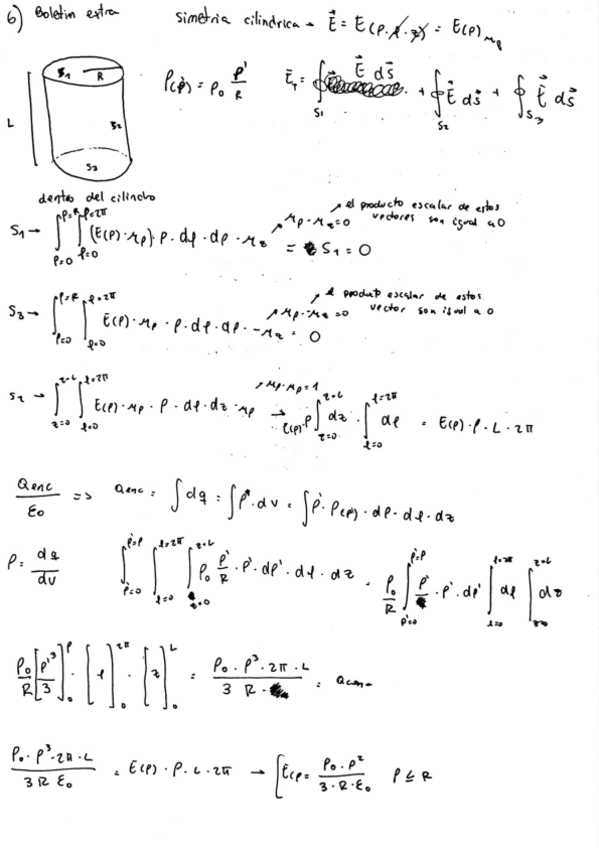 6) Boletin extra
simetria cilindrica → E⃗ = E(ρ, φ, z) = E(ρ) μρ
S1 R
L
S2
S3
ρ(ρ') = ρ0 ρ'/R
E⃗T = ∮S1 E⃗ ds⃗ + ∮S2 E⃗ ds⃗ + ∮S3 E⃗ ds⃗
dentro del cilindro
el producto escalar de estos
vectores son igual a 0
S1 → ∫ρ=0^ρ=R ∫φ=0^φ=2π (E(ρ)·μρ) ρ·dφ·dρ·μz = S1 = 0
μρ·μz=0
el producto escalar de estos
vector son igual a 0
S3 → ∫ρ=0^ρ=R ∫φ=0^φ=2π E(ρ)·μρ·ρ·dφ·dρ·-μz = 0
μρ·-μz=0
S2 → ∫z=0^z=L ∫φ=0^φ=2π E(ρ)·μρ·ρ·dφ·dz·μρ → E(ρ)·ρ ∫z=0^z=L dz · ∫φ=0^φ=2π dφ = E(ρ)·ρ·L·2π
μρ·μρ=1
Qenc/ε0 => Qenc = ∫dq = ∫ρ·dv = ∫ρ'·ρ(ρ')·dρ·dφ·dz
ρ = dq/dv
∫ρ'=0^ρ'=ρ ∫φ=0^φ=2π ∫z=0^z=L ρ0 ρ'/R·ρ'·dρ'·dφ·dz = ρ0/R ∫ρ'=0^ρ'=ρ ρ'·ρ'·dρ' ∫φ=0^φ=2π dφ ∫z=0^z=L dz
ρ0/R [ρ'³/3]0^ρ · [φ]0^2π · [z]0^L = ρ0·ρ³·2π·L / 3 R = Qenc
ρ0·ρ³·2π·L / 3 R ε0 = E(ρ)·ρ·L·2π → E(ρ = ρ0·ρ² / 3·R·ε0 ρ ≤ R